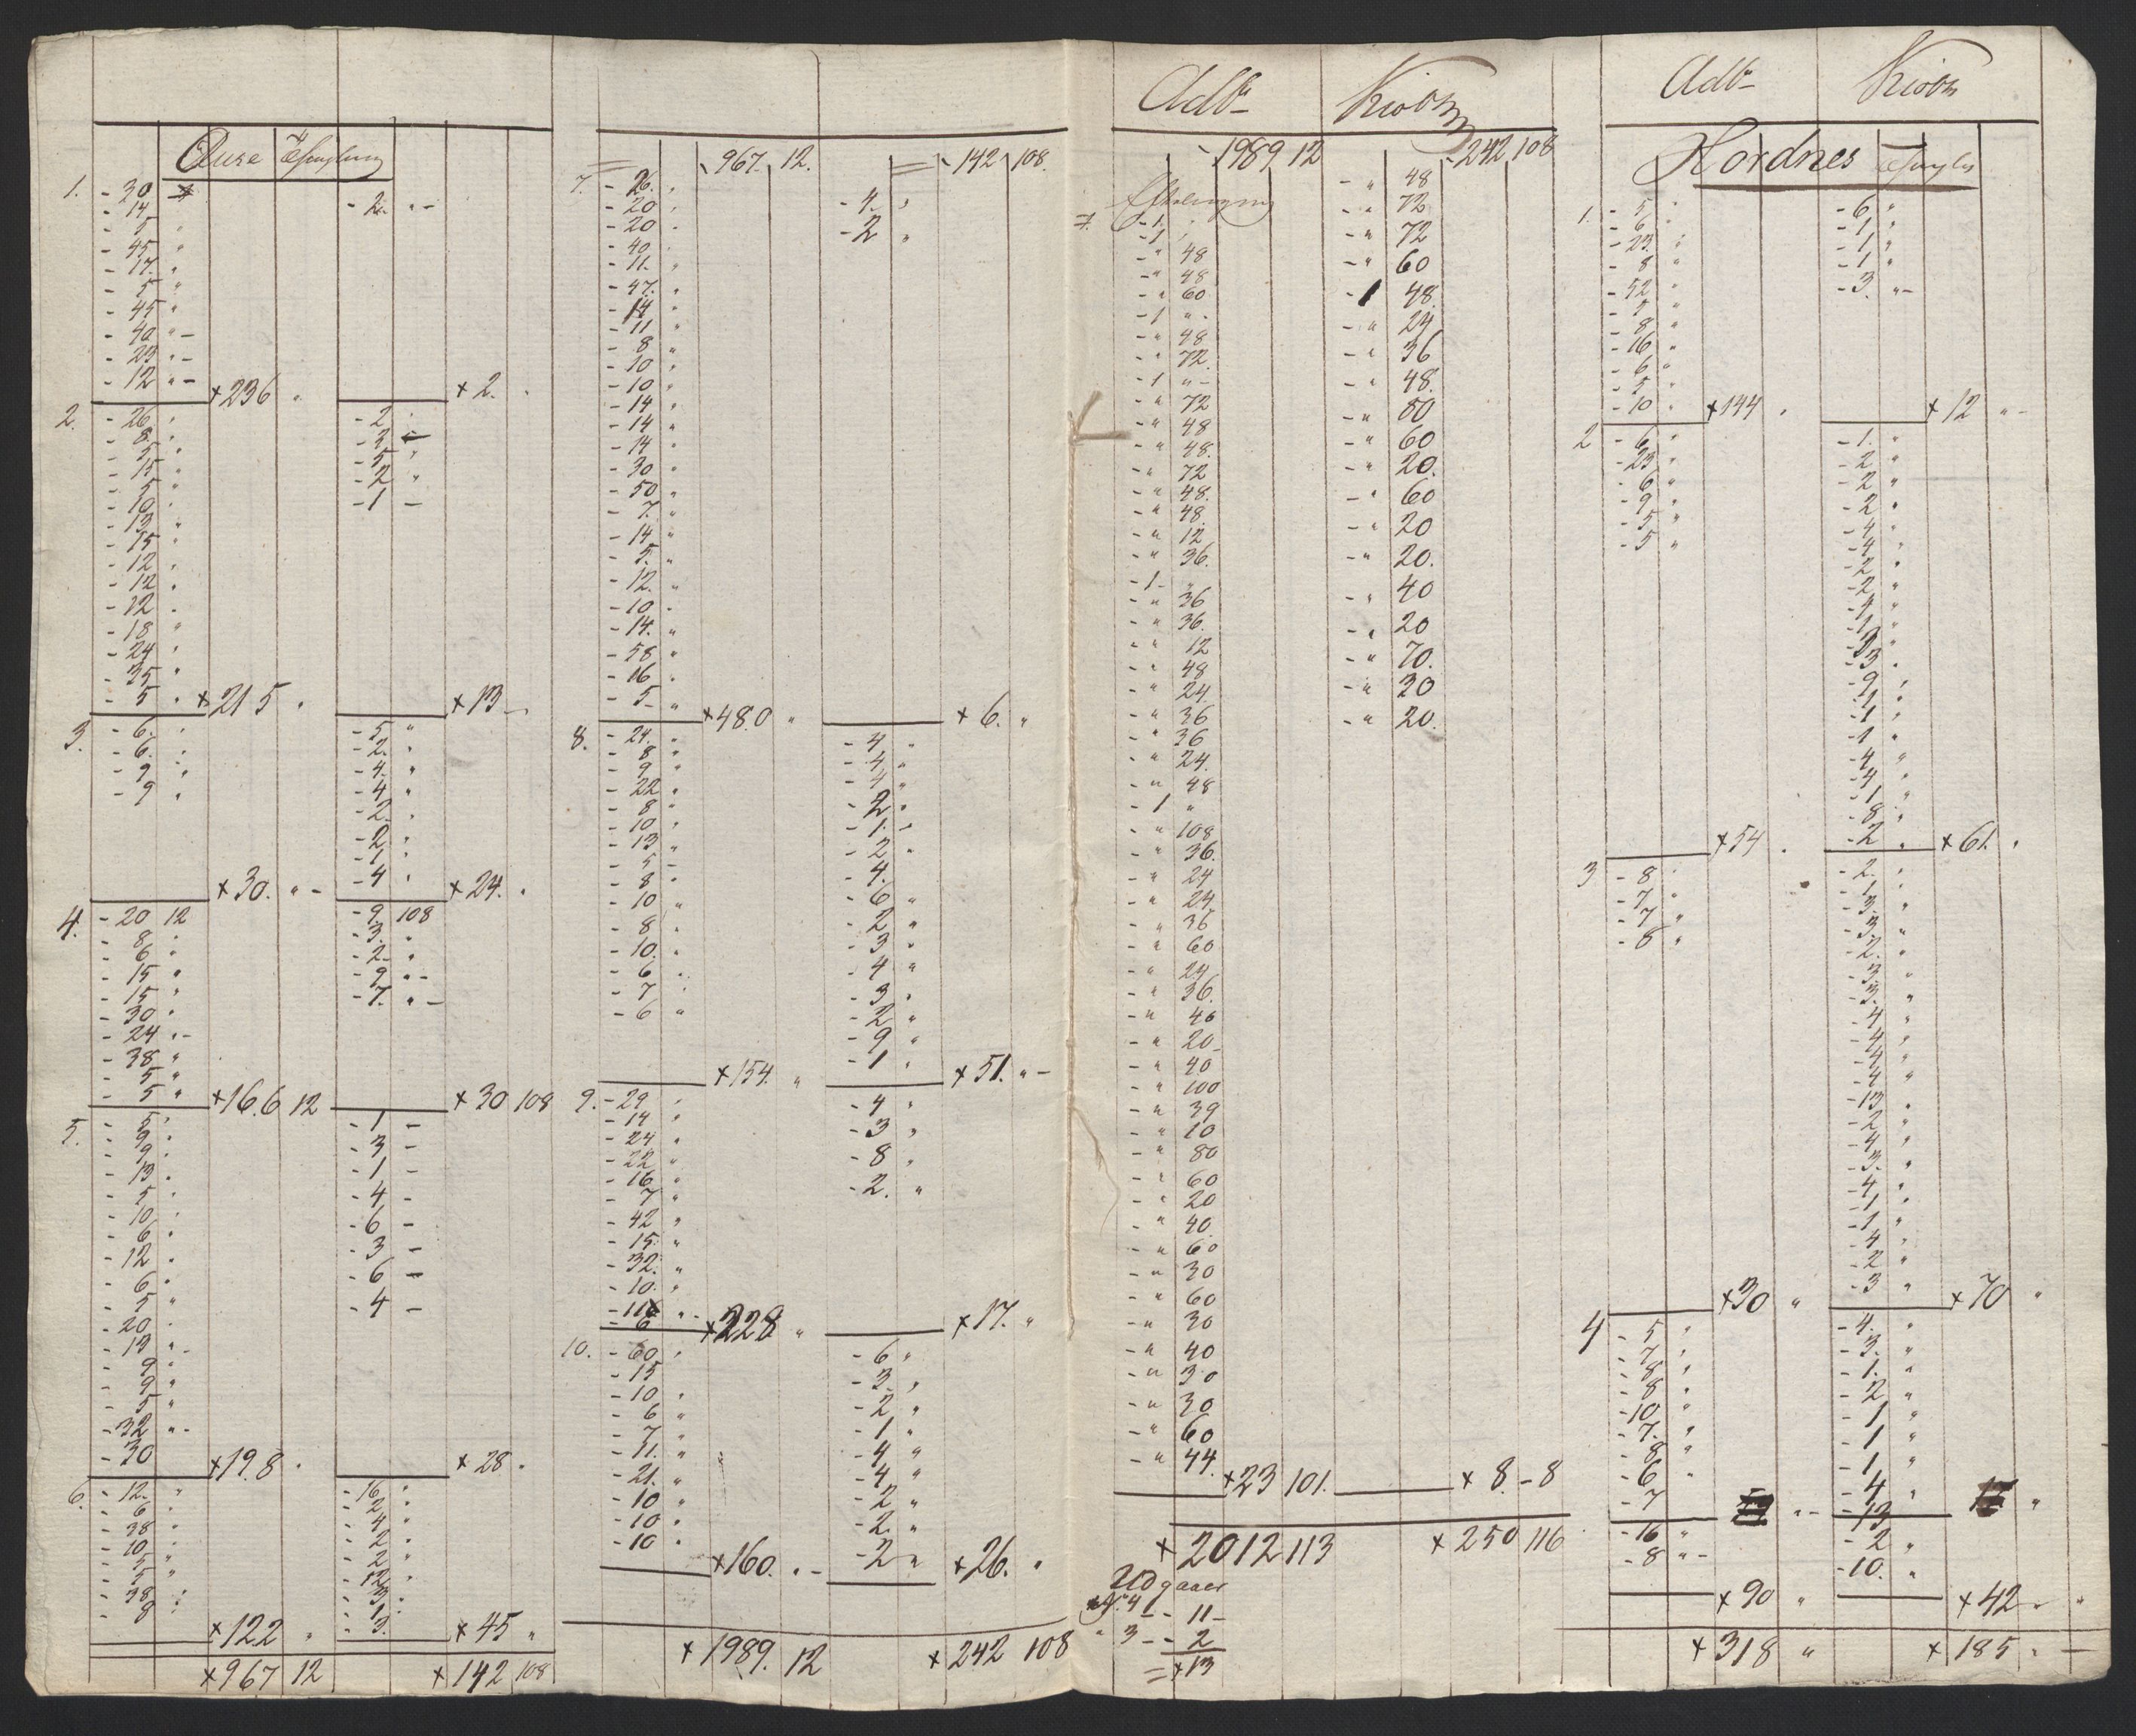 Aure Thinglaug
1. - 30 - 2.
- 14
- 5
- 45
- 17
- 5
- 45
- 40
- 23
- 12 × 236 × 2.
2. - 26 - 2
- 8 - 3
- 5 - 5
- 15 - 2
- 5 - 1
- 10
- 13
- 15
- 12
- 12
- 12
- 18
- 24
- 35
- 5 × 215 × 13
3. - 6 - 5
- 6 - 2
- 9 - 4
- 9 - 4
- 2
- 2
- 1
- 4
× 30. × 24.
4. - 20 12 - 9 108
- 8 - 3
- 6 - 2
- 15 - 9
- 15 - 7
- 30
- 24
- 38
- 5
- 5 × 166 12 × 30 108
5. - 5 - 1
- 9 - 3
- 9 - 1
- 13 - 4
- 5 - 6
- 10 - 3
- 6 - 6
- 12 - 4
- 6
- 5
- 20
- 13
- 9
- 9
- 5
- 32
- 30 × 198 × 28
6. - 12 - 16
- 6 - 2
- 38 - 4
- 10 - 2
- 5 - 2
- 5 - 12
- 38 - 3
- 8 - 1
- 3
× 122 × 45
× 967 12 × 142 108
967. 12. 142 108
7. - 26 - 4
- 20 - 2
- 20
- 40
- 11
- 47
- 14
- 11
- 8
- 10
- 10
- 14
- 14
- 14
- 30
- 50
- 7
- 14
- 5
- 12
- 10
- 14
- 58
- 16
- 5 × 480 × 6.
8. - 24 - 4
- 8 - 4
- 9 - 4
- 22 - 2
- 8 - 1
- 10 - 2
- 13 - 4
- 5 - 6
- 8 - 2
- 10 - 3
- 8 - 4
- 10 - 3
- 6 - 2
- 7 - 9
- 6 - 1
× 154. × 51.
9. - 29 - 4
- 14 - 3
- 24 - 8
- 22 - 2
- 16
- 7
- 42
- 15
- 32
- 10
- 11
- 6 × 228 × 17.
10. - 60 - 6
- 15 - 3
- 10 - 2
- 6 - 1
- 7 - 4
- 11 - 4
- 21 - 2
- 10 - 2
- 10 - 2
- 10
× 160. × 26.
× 1989. 12 × 242 108
Adb Kiobm
- 1989 12 - 242 108
7. - 1
- 1
- " 48
- " 48
- " 60
- 1 "
- " 48
- " 72
- 1 "
- " 72
- " 48
- " 48
- " 72
- " 48
- " 48
- " 12
- " 36
- 1 "
- " 36
- " 36
- " 12
- " 48
- " 24
- " 36
- " 36
- " 24
- " 48
- 1 "
- " 108
- " 36
- " 24
- " 24
- " 36
- " 60
- " 24
- " 36
- " 40
- " 20
- " 40
- " 100
- " 39
- " 10
- " 80
- " 60
- " 20
- " 40
- " 60
- " 30
- " 60
- " 30
- " 40
- " 30
- " 30
- " 60
- " 44
- " 48
- " 72
- " 72
- " 60
- 1 48
- " 24
- " 36
- " 48
- " 80
- " 60
- " 20
- " 60
- " 20
- " 20
- " 40
- " 20
- " 70
- " 30
- " 20
× 23 101. × 8 - 8
× 2012 113 × 250 116
Udgaaer
No 4 - - 11 -
" 3 - - 2
= × 13
Adb Kiobm
Hordnes Thinglaug
1. - 5 - 6
- 6 - 1
- 23 - 1
- 8 - 1
- 52 - 3
- 5
- 8
- 16
- 6
- 5
- 10 × 144 × 12
2 - 6 - 1
- 23 - 2
- 6 - 2
- 9 - 2
- 5 - 4
- 5 - 4
- 2
- 2
- 4
- 1
- 3
- 9
- 1
- 1
- 1
- 4
- 4
- 1
- 8
- 2
× 54 × 61.
3 - 8 - 2
- 7 - 1
- 7 - 3
- 8 - 3
- 2
- 3
- 3
- 4
- 4
- 4
- 4
- 13
- 2
- 4
- 3
- 4
- 1
- 1
- 4
- 2
- 3
× 30 × 70
4 - 5 - 4
- 7 - 3
- 8 - 1
- 8 - 2
- 10 - 1
- 7 - 1
- 8 - 1
- 6 - 4
- 7 - 13
- 16 - 2
- 8 - 10
× 90 × 42
× 318 × 185